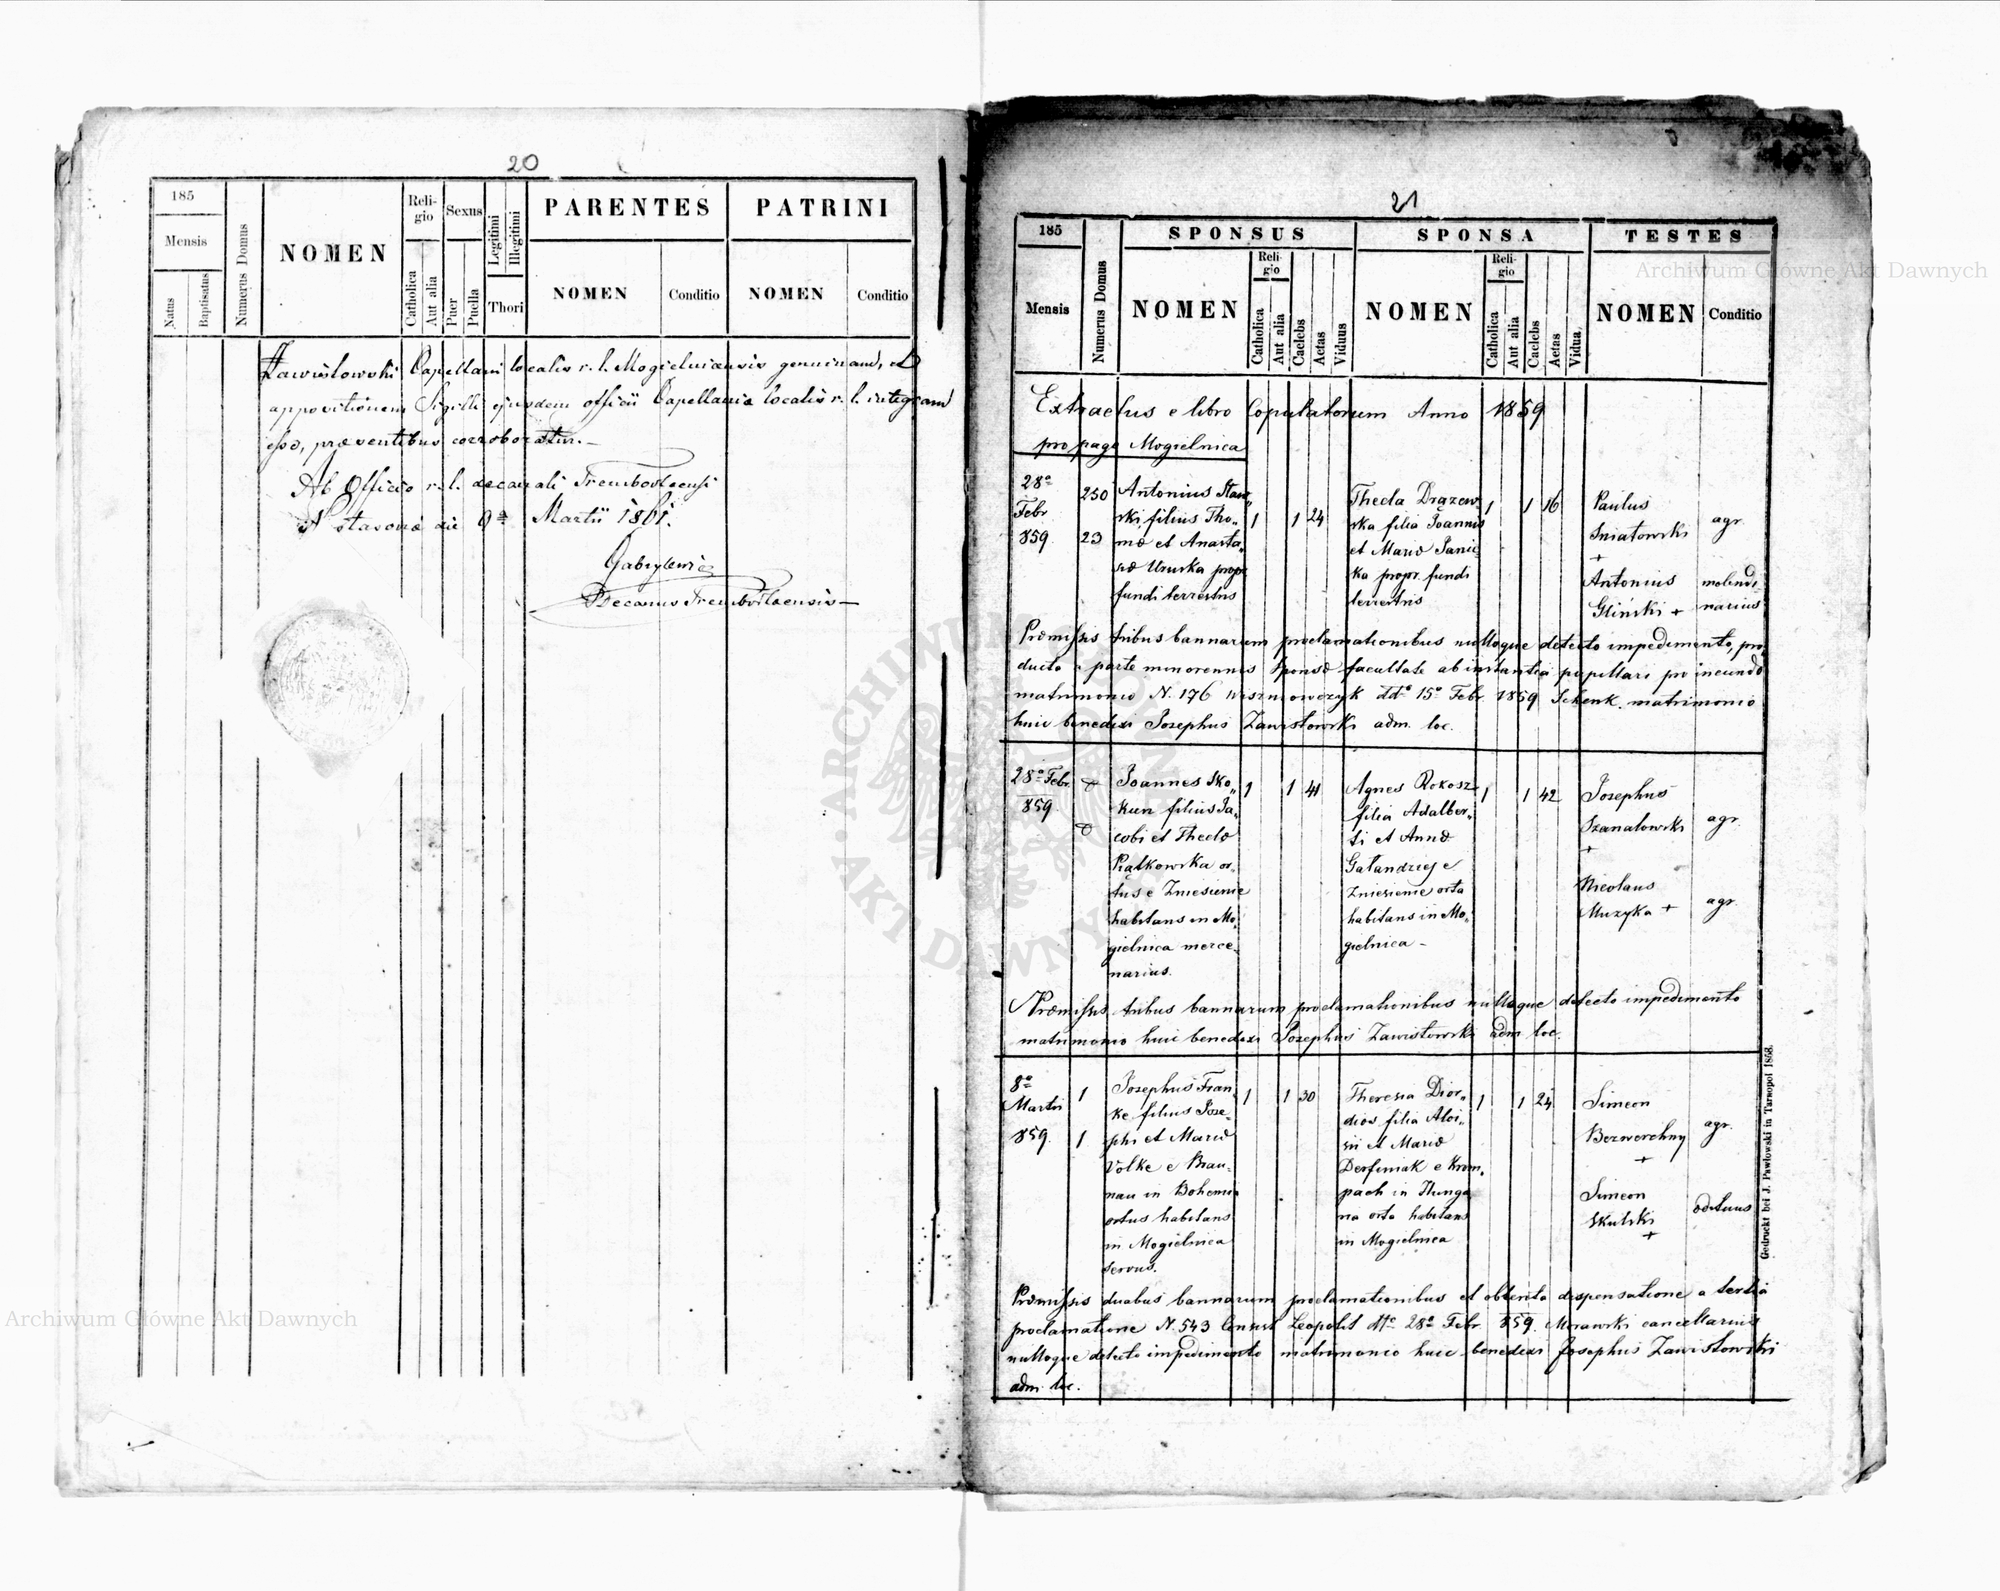 20
185
Mensis
Natus
Baptisatus
Numerus Domus
NOMEN
Reli-
gio
Catholica
Aut alia
Sexus
Puer
Puella
Legitimi
Illegitimi
Thori
PARENTES
NOMEN
Conditio
PATRINI
NOMEN
Conditio
Zawisłowski Capellani localis r. l. Mogielnicensis genuinam, et
appositionem Sigilli ejusdem officii Capellaniæ localis r. l. integram
esse, præsentibus corroboratur.—
Ab Officio r. l. decanali Trembovlensi
die 9ª Martii 1861.
Gabrylewicz
Decanus Trembovlaensis—
21
185
Mensis
Numerus Domus
SPONSUS
NOMEN
Reli-
gio
Catholica
Aut alia
Caelebs
Aetas
Viduus
SPONSA
NOMEN
Reli-
gio
Catholica
Aut alia
Caelebs
Aetas
Vidua
TESTES
NOMEN
Conditio
Extractus e libro Copulatorum Anno 1859
pro pago Mogielnica
28ª
Febr
859
250
23
Antonius Staw„
ski filius Tho„
mæ et Anasta„
siæ Uruska propr
fundi terrestris
1 1 24
Thecla Drązew
ska filia Joannis
et Mariæ Janic„
ka propr. fundi
terrestris
1 1 16
Paulus
Sniatowski
+
Antonius
Gliński +
agr.
molendi
narius
Præmissis tribus bannarum proclamationibus nulloque detecto impedimento, pro„
ducta a parte minorennis Sponsæ facultate ab instantia pupillari pro ineundo
matrimonio N. 176 ddº 15º Febr 1859 Schenk. matrimonio
huic benedixi Josephus Zawisłowski adm. loc.
28ª Febr.
859
Joannes Sko„
kun filius Ja„
cobi et Theclæ
Piątkowska or„
tus e Zniesienie
habitans in Mo„
gielnica merce„
narius.
1 1 41
Agnes Rokosz
filia Adalber„
ti et Annæ
Gałandzij e
Zniesienie orta
habitans in Mo„
gielnica –
1 1 42
Josephus
Szanałowski
+
Nicolaus
Muzyka +
agr.
agr.
Præmissis tribus bannarum proclamationibus nulloque detecto impedimento
matrimonio huic benedixi Josephus Zawisłowski adm. loc.
8ª
Martii
859.
1
1
Josephus Fran„
ke filius Jose„
phi et Mariæ
Völke e Brau„
nau in Bohemia
ortus habitans
in Mogielnica
servus.
1 1 30
Theresia Dior„
dios filia Aloi„
sii et Mariæ
Derfiniak e Krom„
pach in Hunga
ria orta habitans
in Mogielnica
1 1 24
Simeon
Bezwerchny
+
Simeon
Skulski
+
agr.
ædituus
Præmissis duabus bannarum proclamationibus et obtenta dispensatione a tertia
proclamatione N. 543 Consist Leopolit ddº 28ª Febr 859. Morawski cancellarius
nulloque detecto impedimento matrimonio huic benedixi Josephus Zawisłowski
adm. loc.
Gedruckt bei J. Pawłowski in Tarnopol 1858.
Archiwum Główne Akt Dawnych
Archiwum Główne Akt Dawnych
ARCHIWUM GŁÓWNE AKT DAWNYCH